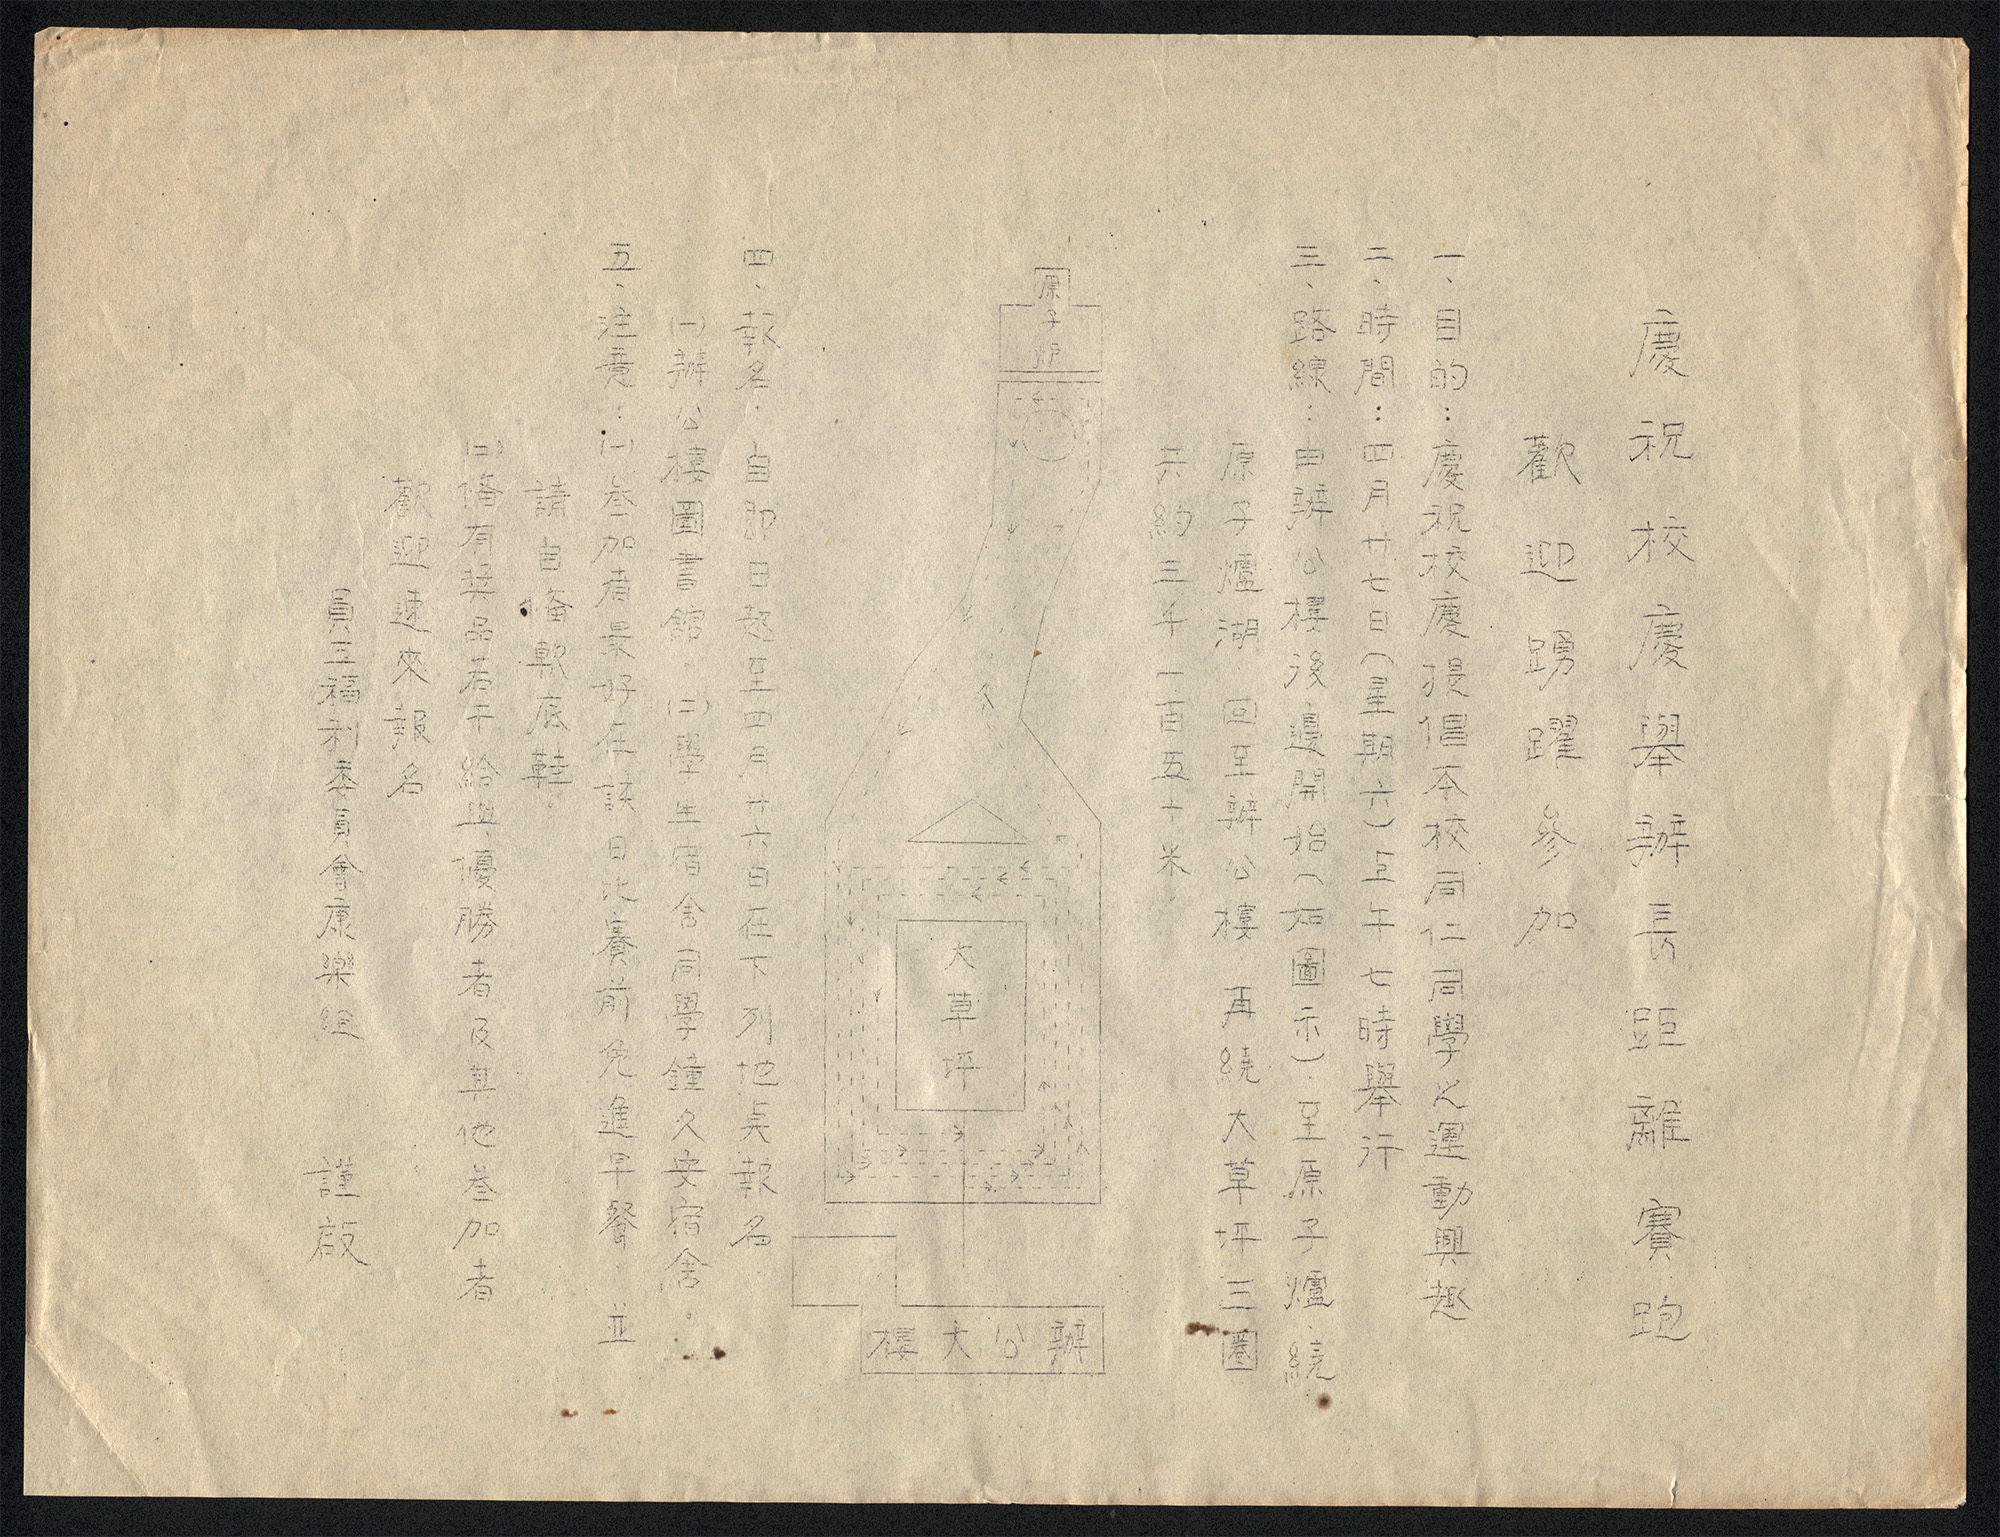 慶祝校慶舉辦長距離賽跑
歡迎踴躍參加
一、目的：慶祝校慶提倡本校同仁同學之運動興趣
二、時間：四月廿七日（星期六）上午七時舉行
三、路線：由辦公樓後邊開始（如圖示）．至原子爐．繞
原子爐湖．回至辦公樓．再繞大草坪三圈
共約三千一百五十米．
原子炉
大草坪
辦公大樓
四、報名：自即日起至四月廿六日在下列地点報名．
㈠辦公樓圖書館．㈡學生宿舍同學鐘久安宿舍。
五、注意：㈠叁加者最好在該日比賽前免進早餐．並
請自俻軟底鞋．
㈡俻有奖品若干給與優勝者及其他叁加者
歡迎速來報名
員工福利委員會康樂組 謹啟